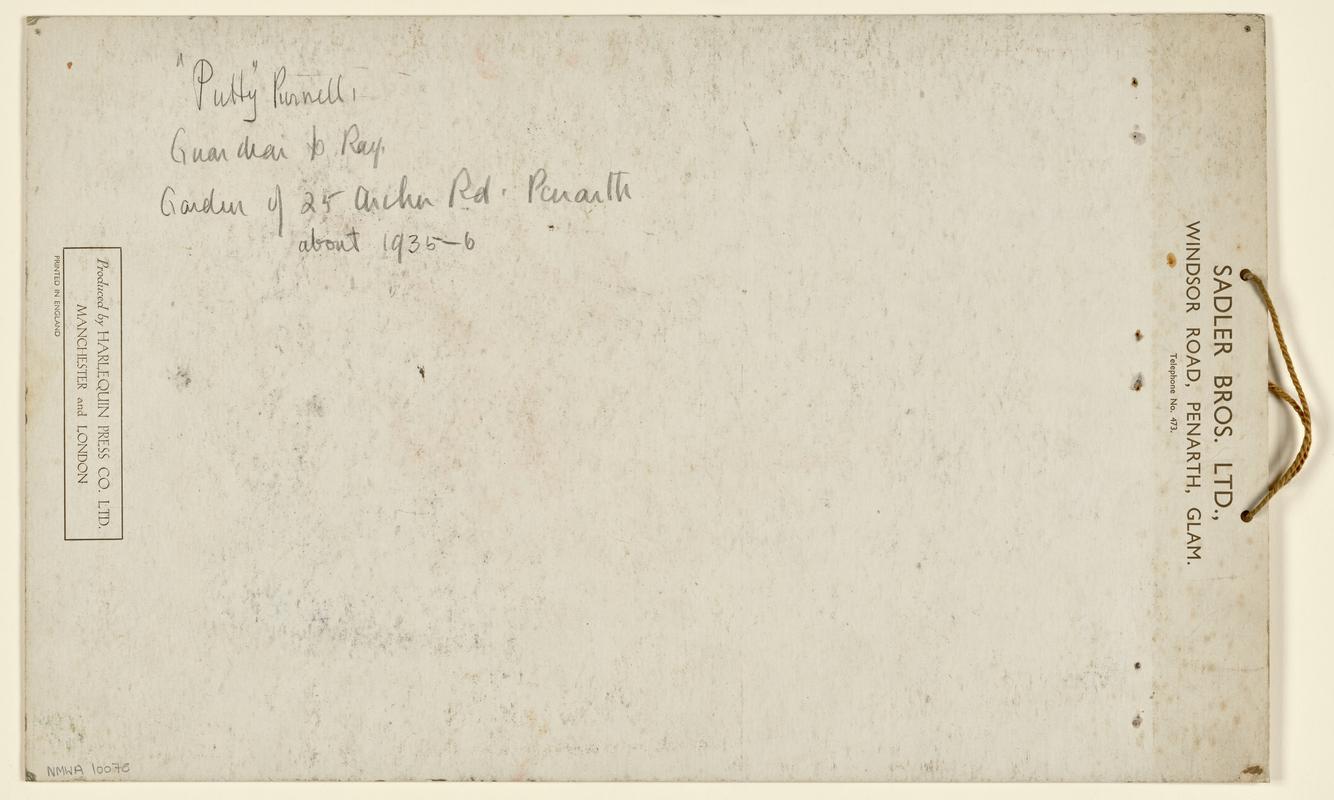 "Putty" Purnell,
Guardian to Ray.
Garden of 25 Archer Rd. Penarth
about 1935–6
Produced by HARLEQUIN PRESS CO. LTD.
MANCHESTER and LONDON
PRINTED IN ENGLAND
SADLER BROS. LTD.,
WINDSOR ROAD, PENARTH, GLAM.
Telephone No. 473.
NMWA